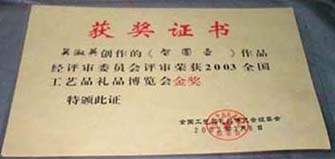 获奖证书
吴淑英创作的《智圆圣》作品
经评审委员会评审荣获2003全国
工艺品礼品博览会金奖
特颁此证
全国工艺品礼品博览会组委会